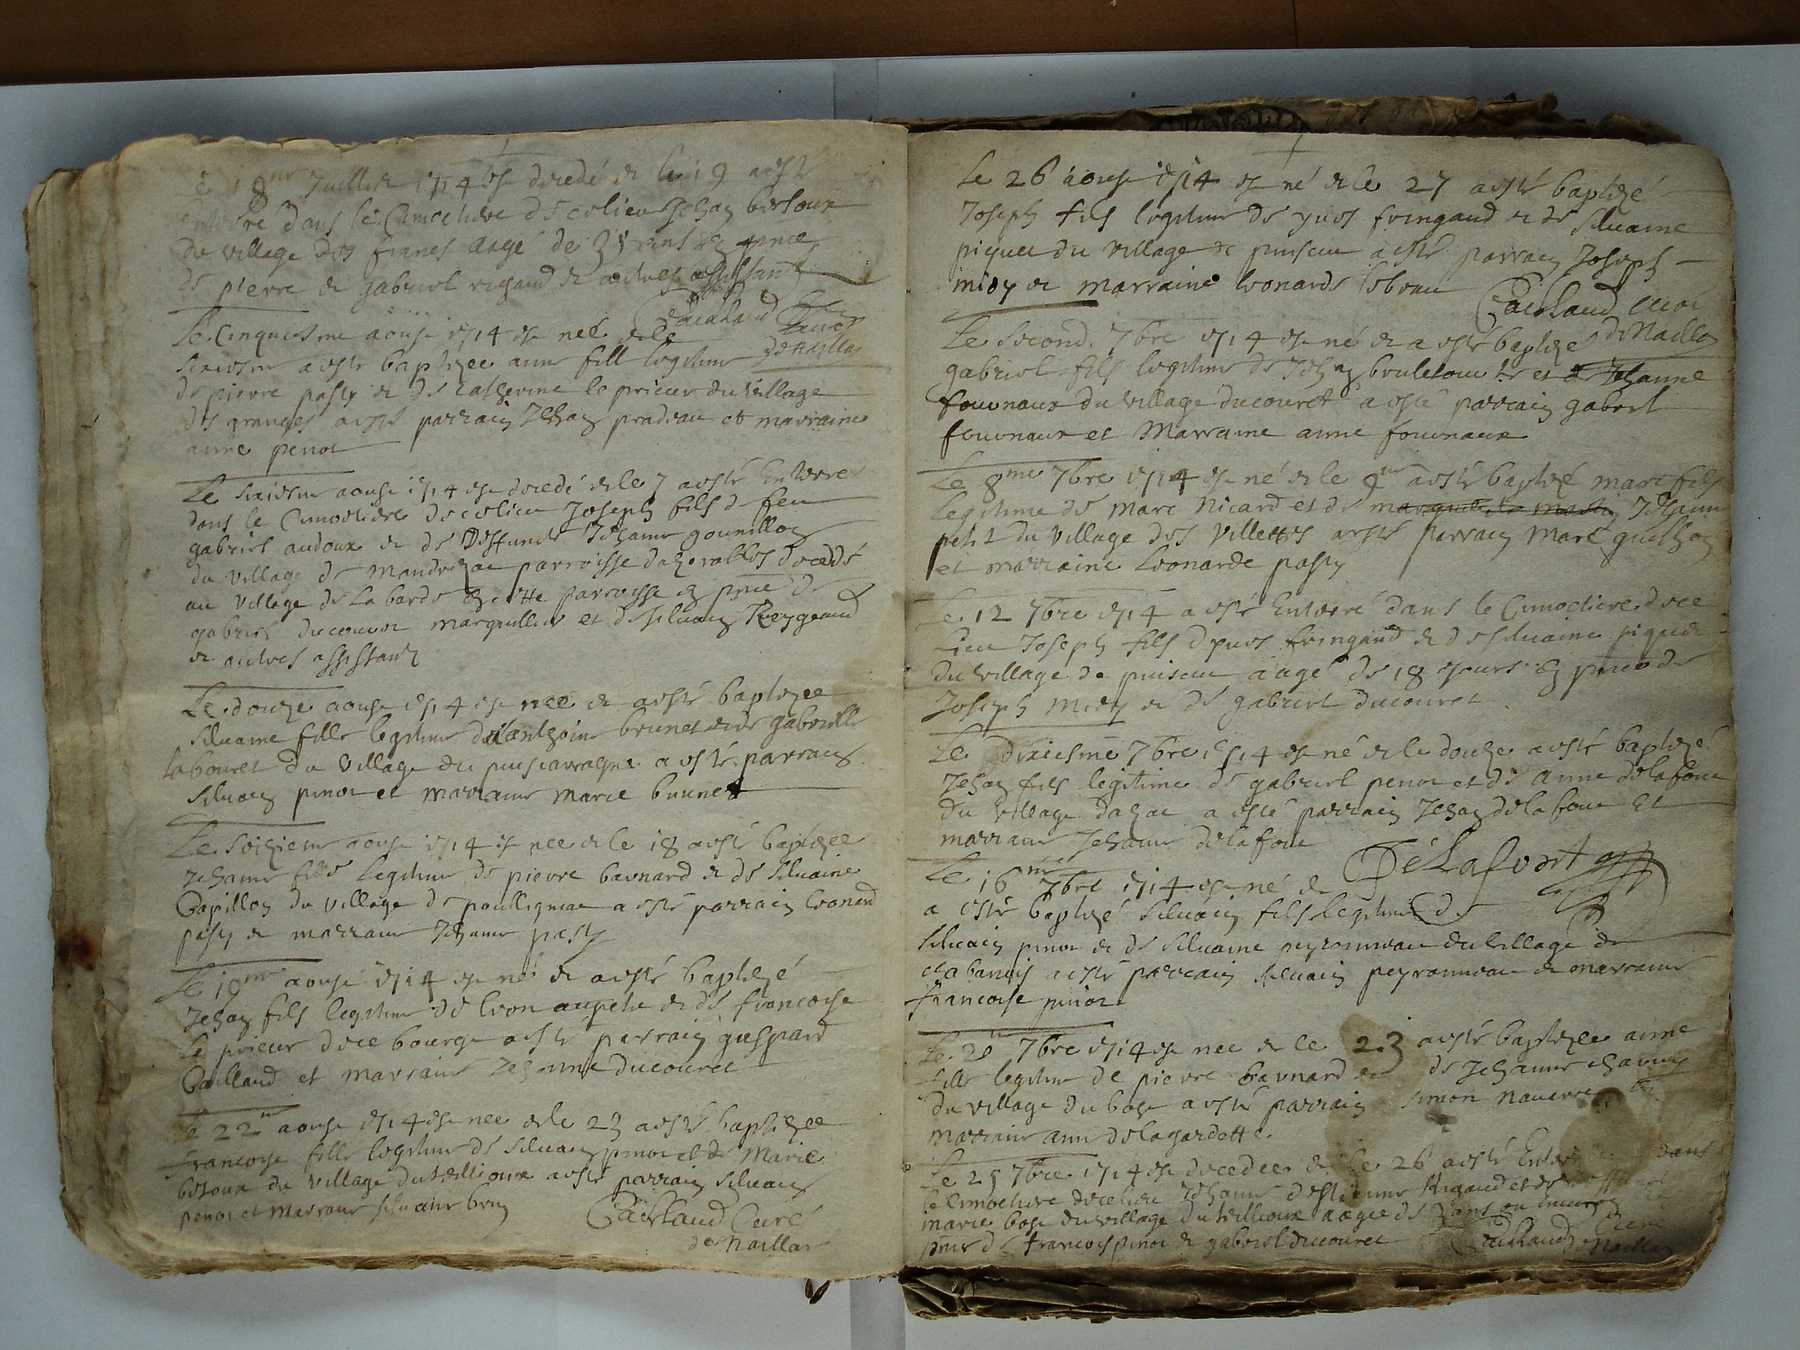 18me Juillet 1714 est decedé et le 19 a esté
enterré dans le Cimetiere de ce lieu Jehan betoux
du village des francs aagé de ans en pnce
de pierre et gabriel rigaud et autres assistants
Caillaud Curé
de Naillat
Le Cinquiesme aoust 1714 est neé et le
sixiesme a esté baptizee anne fille legitime
de pierre pasty et de Catherine le prieur du village
des granges a esté parrain Jehan pradeau et marraine
anne penot
Le sixiesme aoust 1714 est decedé et le 7 a esté Enterré
dans le Cimoetiere de ce lieu Joseph fils de feu
gabriel audoux et de Deffunte Jehanne gounillon
du village de parroisse dazerables decedé
au village de la barde en cette parroisse en pnce de
gabriel ducouret marguillier et de silvain Reygeaud
et autres assistants
Le douze aoust 1714 est neé et a esté baptizee
Silvaine fille legitime de anthoine brunet et de gabrielle
labouret du village du a esté parrain
silvain pinot et marraine marie brunet
Le Seiziesme aoust 1714 est nee et le 18 a esté baptizee
Jehanne fille legitime de pierre baunard et de Silvaine
Papillon du village de poullignac a esté parrain Leonard
pasty et marraine Jehanne pasty
Le 19me aoust 1714 est né et a esté baptizé
Jehan fils legitime de leon aupetit et de francoise
le prieur de ce bourg a esté parrain gaspard
Caillaud et marraine Jehanne ducouret
Le 22me aoust 1714 est nee et le 23 a esté baptizee
francoise fille legitime de silvain pinot et de Marie
betoux du village du teillioux a esté parrain silvain
penot et Marraine silvaine brun
Caillaud Curé
de Naillat
Le 26 aoust 1714 est né et le 27 a esté baptizé
Joseph fils legitime de yves fringaud et de silvaine
piquet du village de puiseux a esté parrain Joseph
midy et marraine leonarde lebeau
Caillaud curé
de Naillat
Le second 7bre 1714 est né et a esté baptizé
gabriel fils legitime de Jehan et de Jehanne
fournaux du village ducouret a esté parrain gabriel
fournaux et Marraine anne fournaux
Le 8me 7bre 1714 est né et le 9me a esté baptizé marc fils
legitime de marc Nicard et de Jehanne
petit du village des Villettes a esté parrain Marc
et marraine Leonarde pasty
Le 12 7bre 1714 a esté Enterré dans le Cimoetiere de ce
Lieu Joseph fils dyves fringaud et de silvaine piquet
du village de puiseux aagé de 18 jours En pnce de
Joseph Midy et de gabriel ducouret
Le dixiesme 7bre 1714 est né et le douze a esté baptizé
Jehan fils legitime de gabriel penot et de anne delafont
du village dazat a esté parrain Jehan delafont Et
marraine Jehanne delafont
DeLafont
Le 16me 7bre 1714 est né et
a esté baptizé silvain fils legitime de
silvain pinot et de silvaine peyronneau du village de
chabanois a esté parrain silvain peyronneau et marraine
francoise pinot
7bre 1714 est nee et le 23 a esté baptizee anne
fille legitime de pierre baunard et de Jehanne
du village du bost a esté parrain simon navarre et
marraine anne delagardette
Le 25 7bre 1714 est decedee et le 26 a esté Enterrée dans
le Cimoetiere de ce lieu Jehanne destienne Rigaud et de deffunte
marie bost du village du teillioux aagee de ans ou environ en
pnce de francois pinot et gabriel ducouret
Caillaud Curé
de Naillat